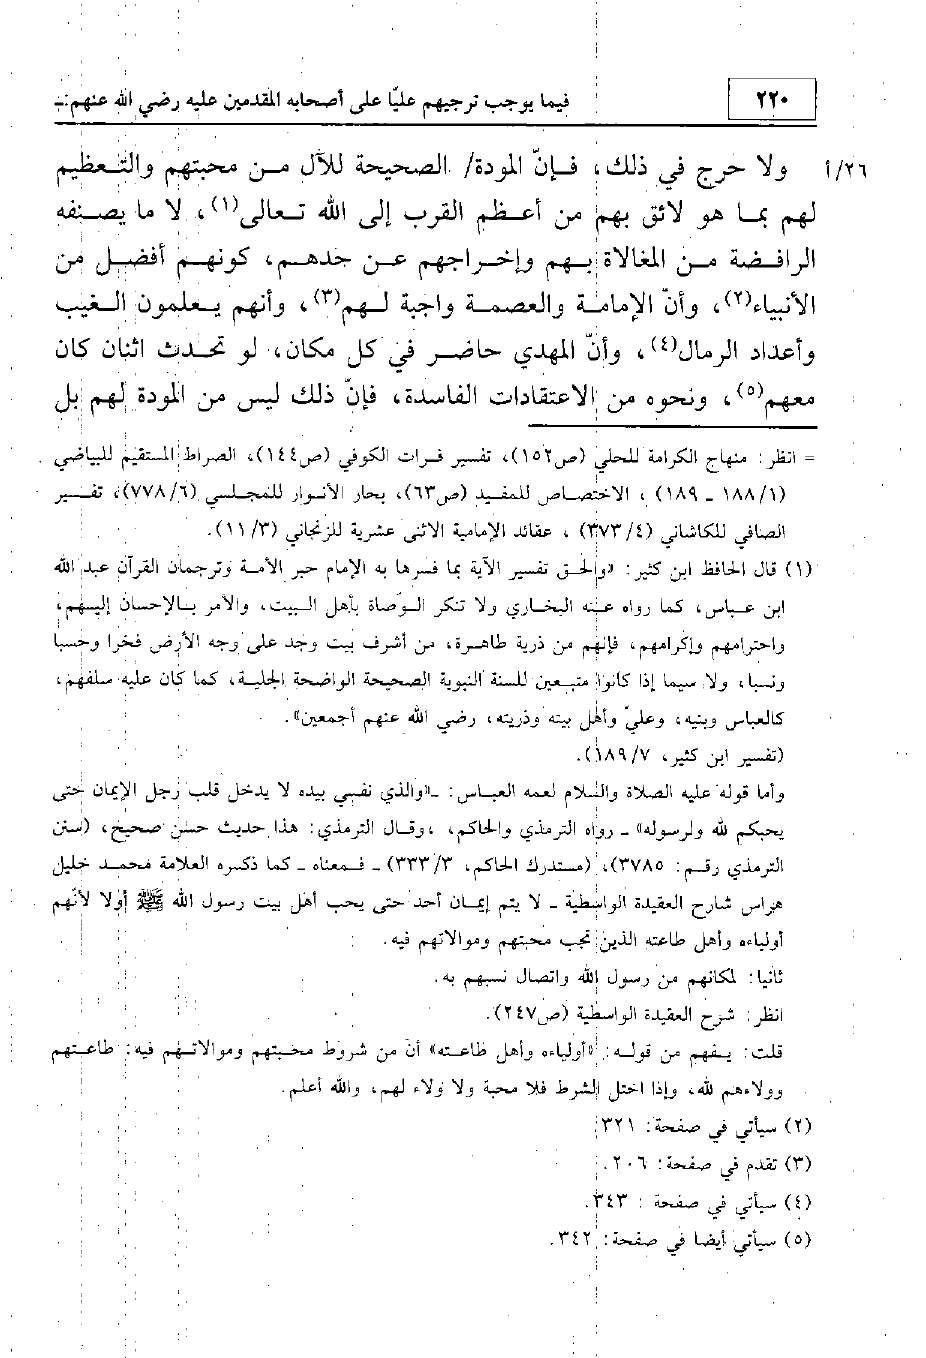 ٢٢٠
فيما يوجب ترجيهم عليّا على أصحابه المقدمين عليه رضي الله عنهم:ـ
٢٦/أ
ولا حرج في ذلك، فإنّ المودة/ الصحيحة للآل من محبتهم والتعظيم
لهم بما هو لائق بهم من أعظم القرب إلى الله تعالى(١)، لا ما يصنفه
الرافضة من المغالاة بهم وإخراجهم عن حدهم، كونهم أفضل من
الأنبياء(٢)، وأنّ الإمامة والعصمة واجبة لهم(٣)، وأنهم يعلمون الغيب
وأعداد الرمال(٤)، وأنّ المهدي حاضر في كل مكان، لو تحدث اثنان كان
معهم(٥)، ونحوه من الاعتقادات الفاسدة، فإنّ ذلك ليس من المودة لهم بل
= انظر: منهاج الكرامة للحلي (ص١٥٢)، تفسير فرات الكوفي (ص١٤٤)، الصراط المستقيم للبياضي
(١/١٨٨ ـ ١٨٩) ، الاختصاص للمفيد (ص٦٣)، بحار الأنوار للمجلسي (٦/٧٧٨)، تفسير
الصافي للكاشاني (٤/٣٧٣) ، عقائد الإمامية الاثنى عشرية للزنجاني (٣/١١).
(١) قال الحافظ ابن كثير: «والحق تفسير الآية بما فسرها به الإمام حبر الأمة وترجمان القرآن عبد الله
ابن عباس، كما رواه عنه البخاري ولا تنكر الوَصاة بأهل البيت، والأمر بالإحسان إليهم،
واحترامهم وإكرامهم، فإنهم من ذرية طاهرة، من أشرف بيت وجد على وجه الأرض فخرا وحسبا
ونسبا، ولا سيما إذا كانوا متبعين للسنة النبوية الصحيحة الواضحة الجلية، كما كان عليه سلفهم،
كالعباس وبنيه، وعليّ وأهل بيته وذريته، رضي الله عنهم أجمعين».
(تفسير ابن كثير، ١٨٩/٧).
وأما قوله عليه الصلاة والسلام لعمه العباس: ـ«والذي نفسي بيده لا يدخل قلب رجل الإيمان حتى
يحبكم لله ولرسوله» ـ رواه الترمذي والحاكم، ،وقال الترمذي: هذا حديث حسن صحيح، (سنن
الترمذي رقم: ٣٧٨٥)، (مستدرك الحاكم، ٣/٣٣٣) ـ فمعناه ـ كما ذكره العلامة محمد خليل
هراس شارح العقيدة الواسطية ـ لا يتم إيمان أحد حتى يحب أهل بيت رسول الله ﷺ أولا لأنّهم
أولياءه وأهل طاعته الذين تجب محبتهم وموالاتهم فيه.
ثانيا: لمكانهم من رسول الله واتصال نسبهم به.
انظر: شرح العقيدة الواسطية (ص٢٤٧).
قلت: يفهم من قوله: «أولياءه وأهل طاعته» أن من شروط محبتهم وموالاتهم فيه: طاعتهم
وولاءهم لله، وإذا اختل الشرط فلا محبة ولا ولاء لهم، والله أعلم.
(٢) سيأتي في صفحة: ٣٢١
(٣) تقدم في صفحة: ٢٠٦.
(٤) سيأتي في صفحة : ٣٤٣.
(٥) سيأتي أيضا في صفحة: ٣٤٢.